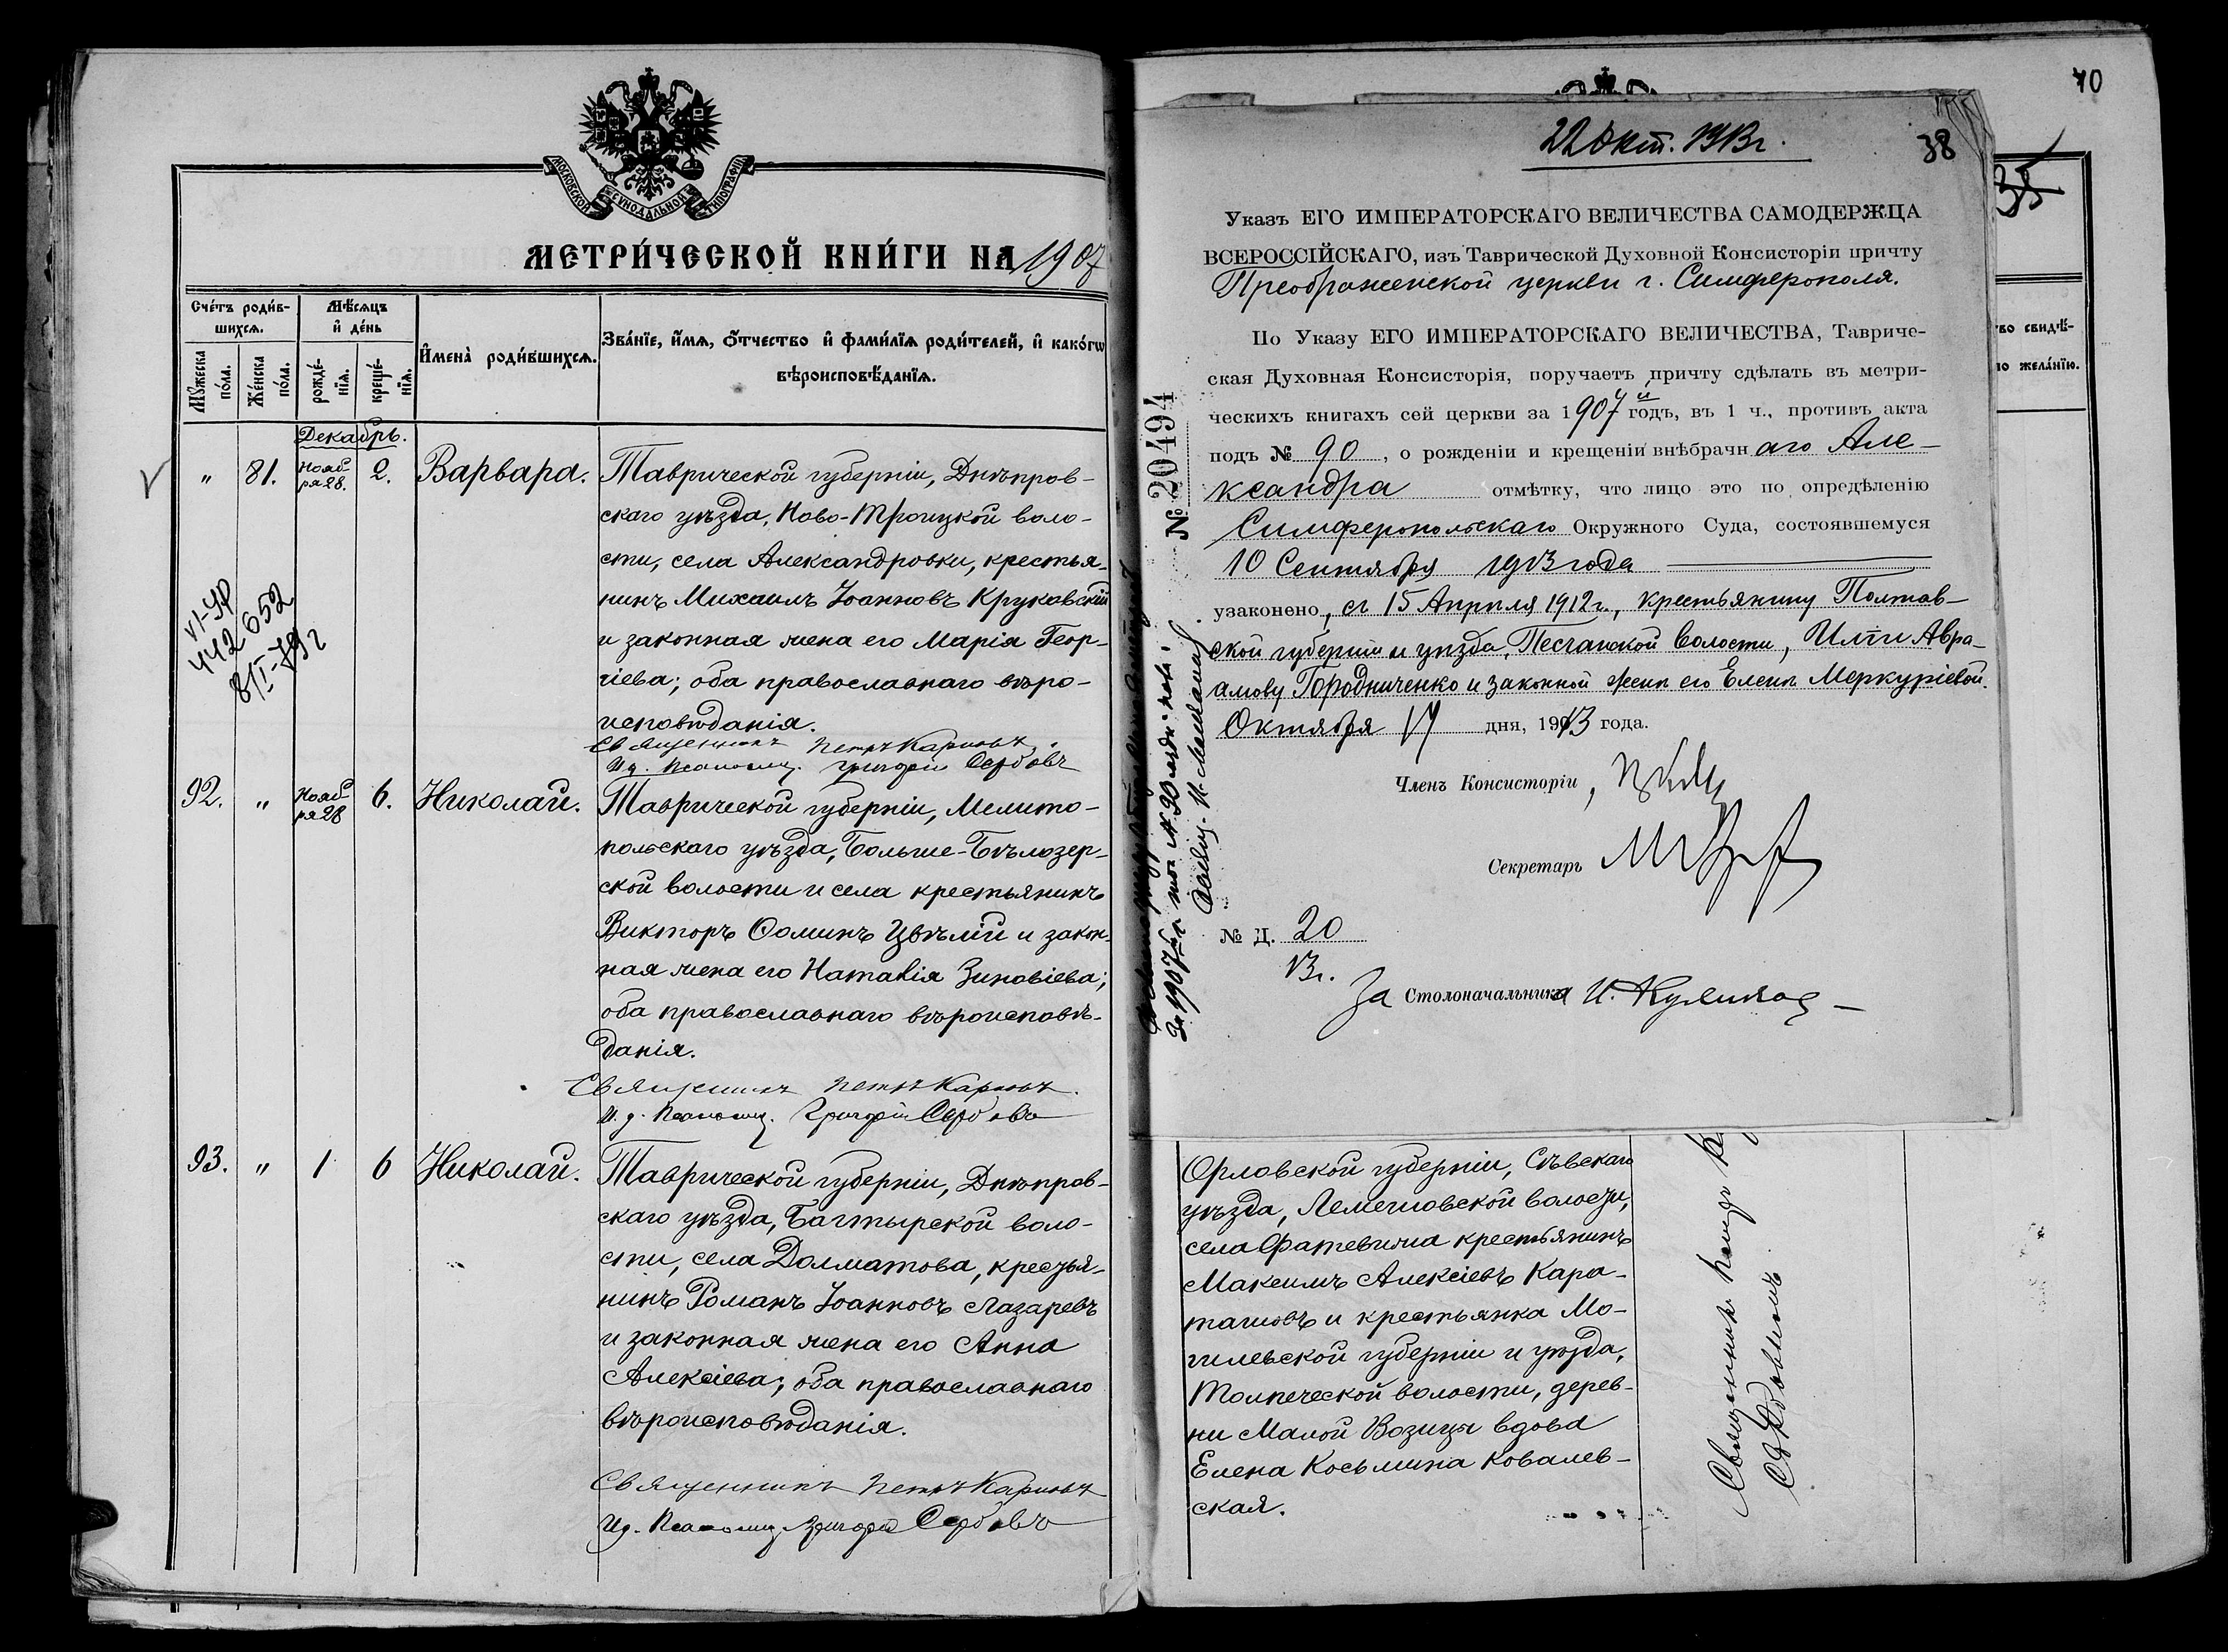 МОСКОВСКОЙ СѴНОДАЛЬНОЙ ТИПОГРАФІИ
МЕТРИ́ЧЕСКОЙ КНИ́ГИ НА 1907
Сче́тъ роди́в-
шихсѧ.
Мѣ́сѧцъ
и҆ де́нь
Мꙋ́жеска
по́ла.
Же́нска
по́ла.
рожде́-
нїѧ.
креще́-
нїѧ.
И҆мена̀ роди́вшихсѧ.
Зва́нїе, и҆́мѧ, ѻ҆́тчество и҆ фами́лїѧ роди́телей, и҆ како́гѡ
вѣроисповѣ́данїѧ.
Декабрь.
"
81.
Нояб
ря 28.
2.
Варвара.
Таврической губерніи, Днѣпров-
скаго уѣзда, Ново-Троицкой воло-
сти, села Александровки, крестья-
нинъ Михаилъ Іоанновъ Круковскій
и законная жена его Марія Геор-
гіева; оба православнаго вѣро-
исповѣданія.
Священникъ Петръ Карповъ.
И.д. Псаломщ. Григорій Сербовъ
VI-УР
442652
8/I-79г
92.
"
Нояб
ря 28
6.
Николай.
Таврической губерніи, Мелито-
польскаго уѣзда, Больше-Бѣлозер-
ской волости и села крестьянинъ
Викторъ Ѳоминъ Цвѣлій и закон-
ная жена его Наталія Зиновіева;
оба православнаго вѣроисповѣ-
данія.
Священникъ Петръ Карповъ.
И.д. Псаломщ. Григорій Сербовъ
93.
"
1
6
Николай.
Таврической губерніи, Днѣпров-
скаго уѣзда, Багтырской воло-
сти, села Долматова, крестья-
нинъ Романъ Іоанновъ Лазаревъ
и законная жена его Анна
Алексіева; оба православнаго
вѣроисповѣданія.
Священникъ Петръ Карповъ
И.д. Псаломщ. Григорій Сербовъ
40
35
во свидѣ-
по жела́нїю.
22 Окт. 1913г.
38
Указъ ЕГО ИМПЕРАТОРСКАГО ВЕЛИЧЕСТВА САМОДЕРЖЦА
ВСЕРОССІЙСКАГО, изъ Таврической Духовной Консисторіи причту
Преображенской церкви г. Симферополя.
По Указу ЕГО ИМПЕРАТОРСКАГО ВЕЛИЧЕСТВА, Тавриче-
ская Духовная Консисторія, поручаетъ причту сдѣлать въ метри-
ческихъ книгахъ сей церкви за 1907 й годъ, въ 1 ч., противъ акта
подъ № 90, о рожденіи и крещеніи внѣбрачнаго Але-
ксандра отмѣтку, что лицо это по опредѣленію
Симферопольскаго Окружного Суда, состоявшемуся
10 Сентября 1913 года
узаконено, съ 15 Апрѣля 1912 г., крестьянину Полтав-
ской губерніи и уѣзда, Песчанской волости, Иліи Авра-
амову Городниченко и законной женѣ его Еленѣ Меркуріевой.
Октября 17 дня, 1913 года.
Членъ Консисторіи,
Секретарь
№ Д. 20
13г.
За Столоначальника И.
№ 20494
За 1907
Орловской губерніи, Сѣвскаго
уѣзда, Лемешовской волости,
села Фатевижа крестьянинъ
Максимъ Алексіевъ Кара-
ташовъ и крестьянка Мо-
гилевской губерніи и уѣзда,
Толпеческой волости, дерев-
ни Малой Возицы вдова
Елена Косьмина Ковалев-
ская.
Священникъ Петръ